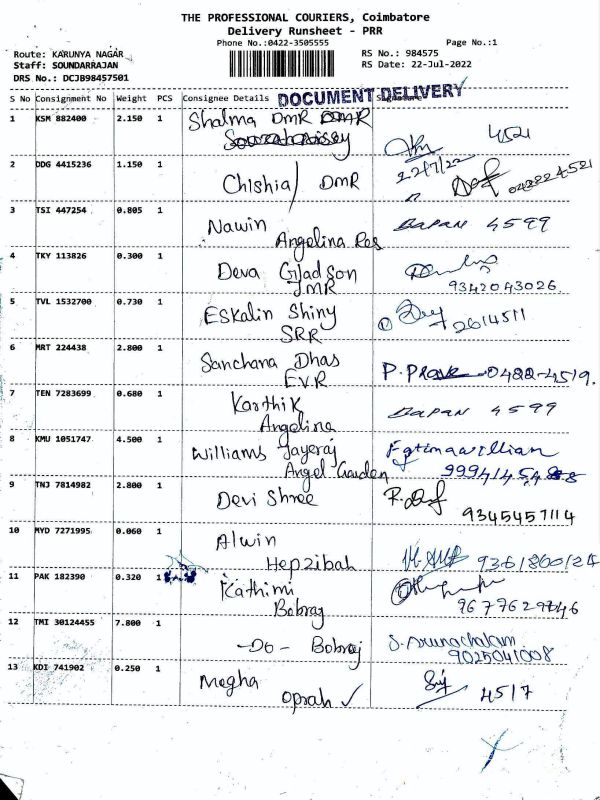 THE PROFESSIONAL COURIERS, Coimbatore
Delivery Runsheet - PRR
Phone No.:0422-3505555
Page No.:1
Route: KARUNYA NAGAR
RS No.: 984575
Staff: SOUNDARRAJAN
RS Date: 22-Jul-2022
DRS No.: DCJB98457501
DOCUMENT DELIVERY
S No Consignment No Weight PCS Consignee Details
1 KSM 882400 2.150 1 Shalma DMR 4521
22/7/22
2 DDG 4415236 1.150 1 Chishia DMR
3 TSI 447254 0.805 1 Nawin 4599
Angelina Res
4 TKY 113826 0.300 1 Deva Gladson
JMR 9342043026
5 TVL 1532700 0.730 1 Eskalin Shiny 2614511
SRR
6 MRT 224438 2.800 1 Sanchana Dhas
EVR 0422-4519.
7 TEN 7283699 0.680 1 Karthik 4599
Angelina
8 KMU 1051747 4.500 1 Williams Jayeraj
Angel Garden
9 TNJ 7814982 2.800 1 Devi Shree
9345457114
10 MYD 7271995 0.060 1 Alwin
Hepzibah
11 PAK 182390 0.320 1 Kathimi
Bobraj
12 TMI 30124455 7.800 1 -Do- Bobraj S. Arunachalam
9025041008
13 KDI 741902 0.250 1 Megha 4517
Oprah ✓